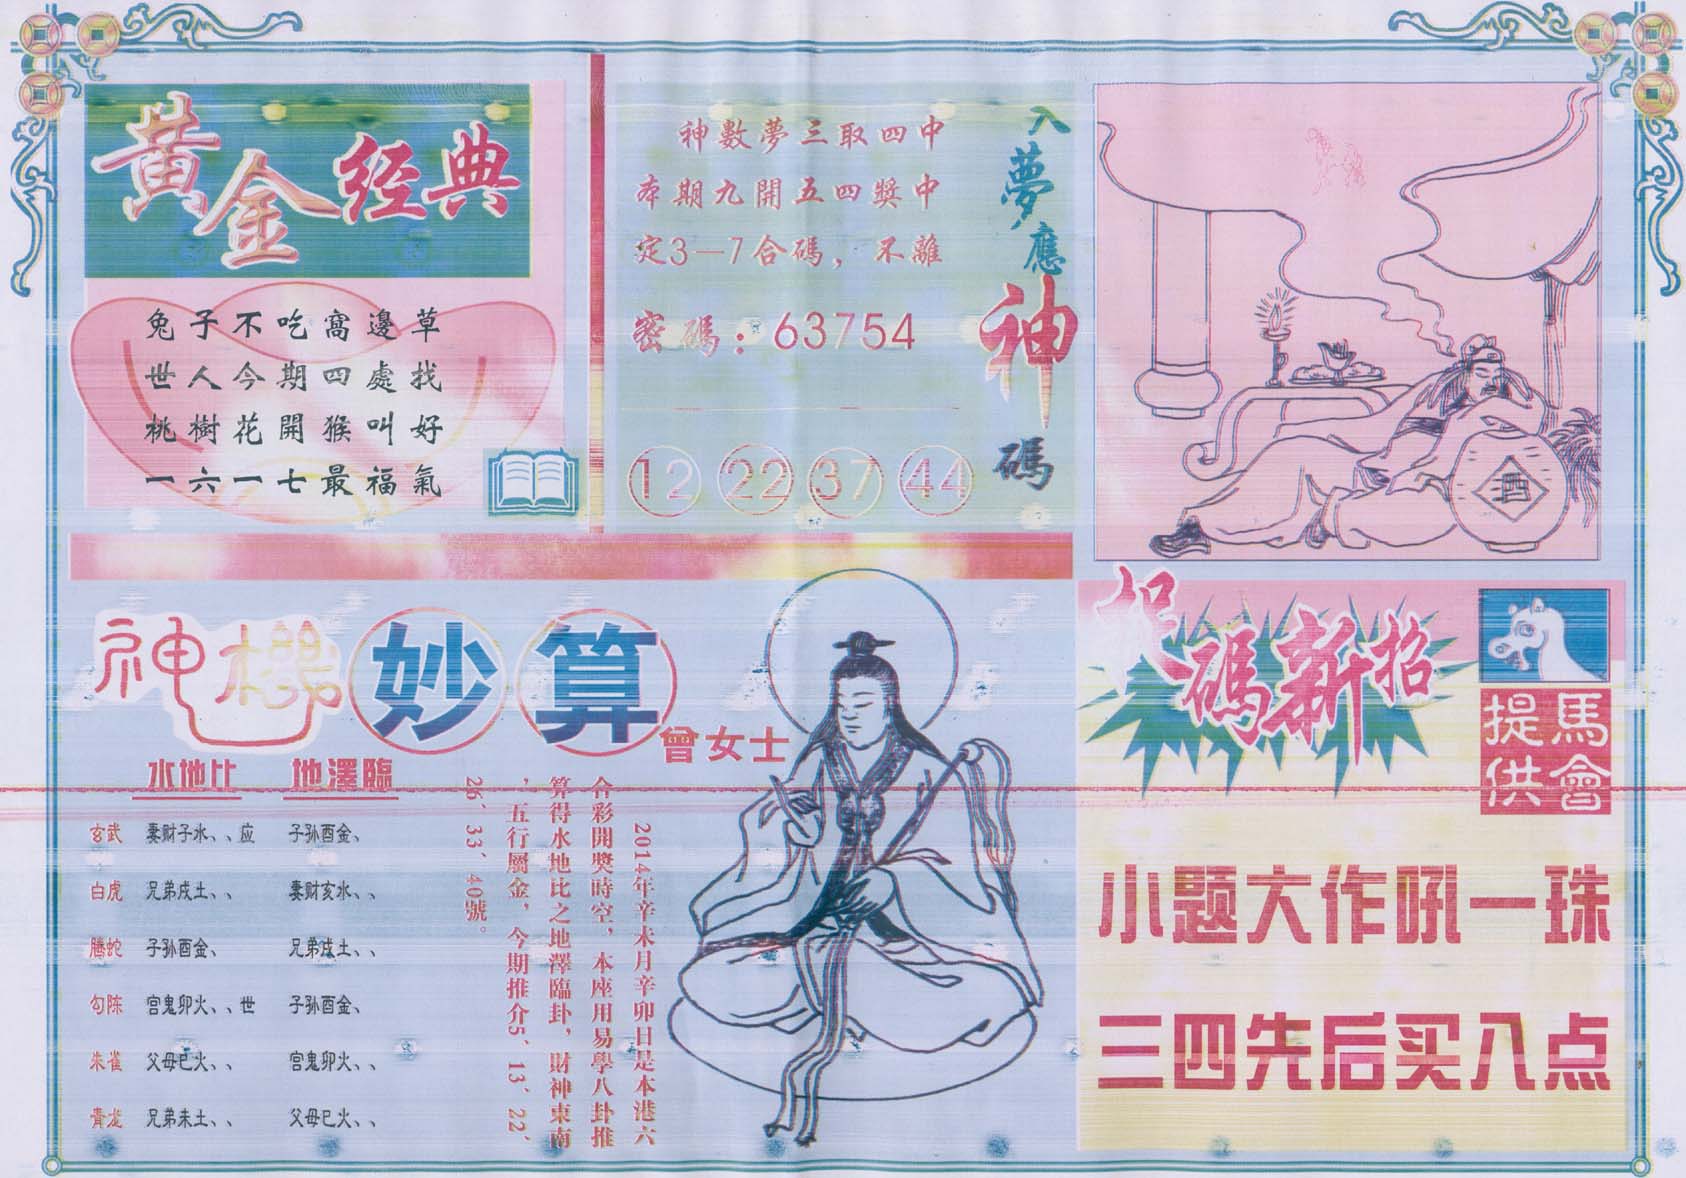 黃金经典
兔子不吃窩邊草
世人今期四處找
桃樹花開猴叫好
一六一七最福氣
神數夢三取四中
本期九開五四獎中
定3—7合碼，不離
密碼：63754
12 22 37 44
入夢應神碼
酒
神機妙算
曾女士
水地比 地澤臨
玄武 妻财子水、、应 子孙酉金、
白虎 兄弟戌土、、 妻财亥水、、
腾蛇 子孙酉金、 兄弟戌土、、
勾陈 官鬼卯火、、世 子孙酉金、
朱雀 父母巳火、、 官鬼卯火、、
青龙 兄弟未土、、 父母巳火、、
2014年辛未月辛卯日是本港六
合彩開獎時空，本座用易學八卦推
算得水地比之地澤臨卦，財神東南
，五行屬金，今期推介5、13、22、
26、33、40號。
捉碼新招
馬會
提供
小题大作吼一珠
三四先后买八点